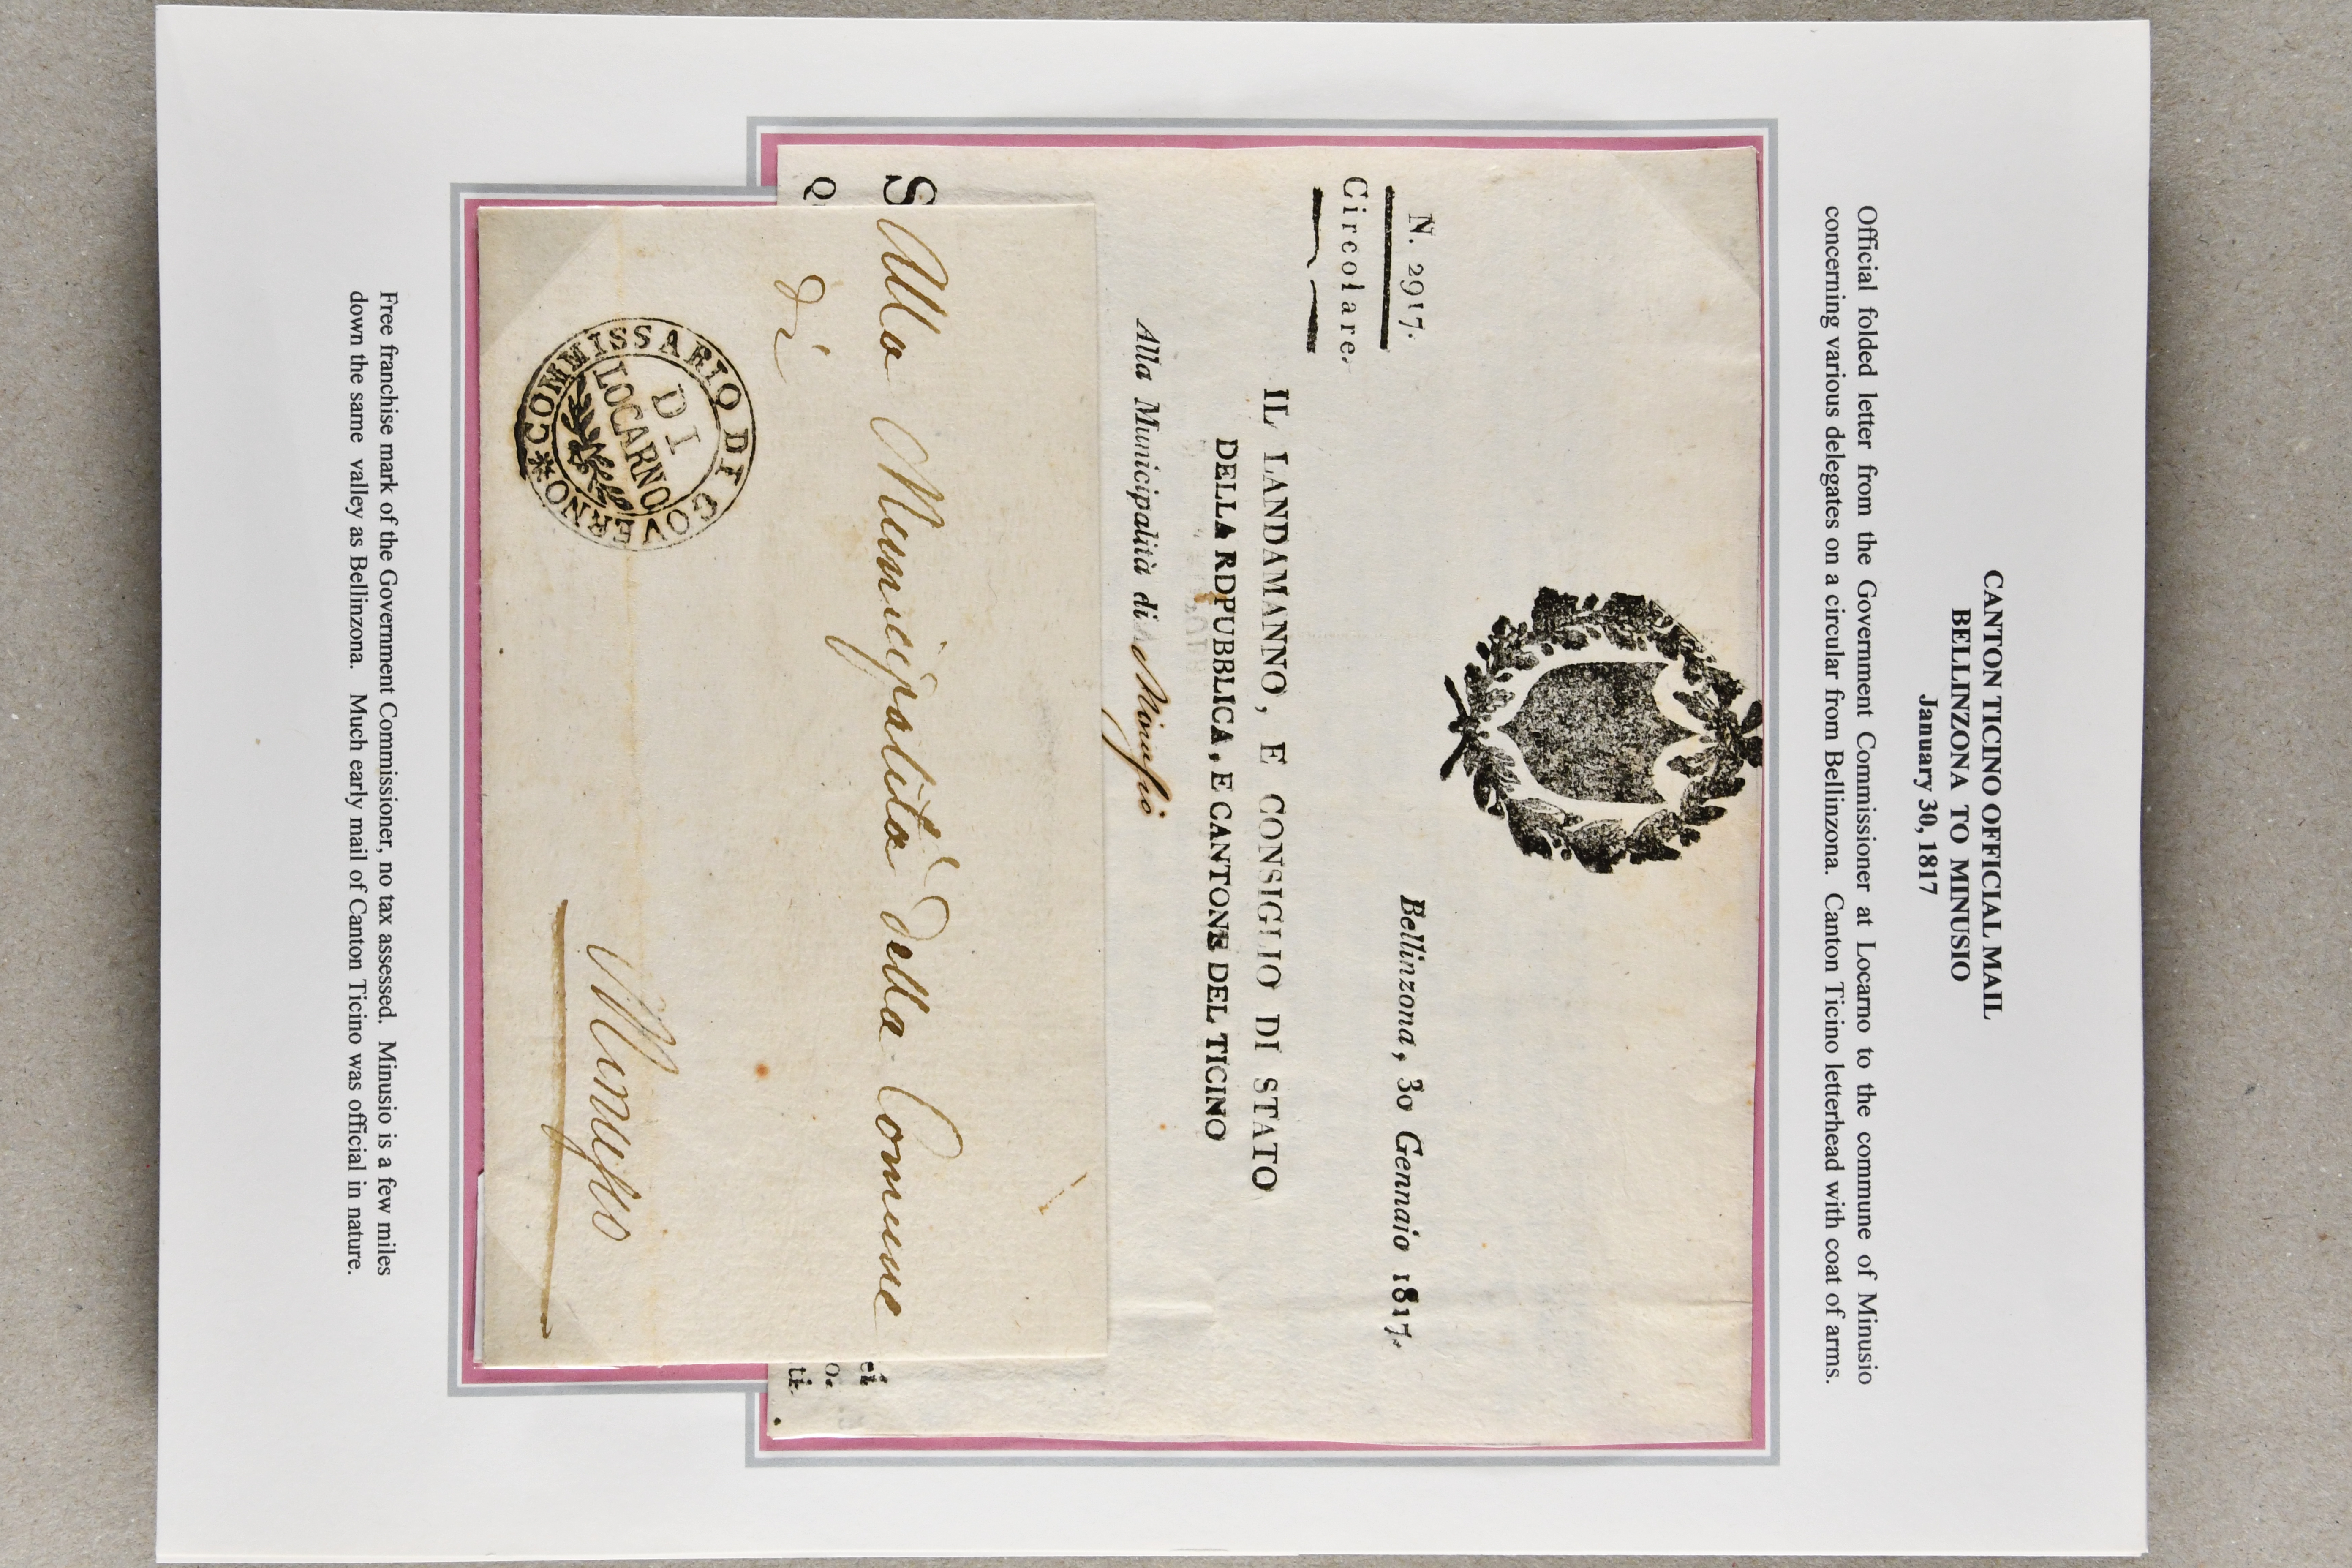 CANTON TICINO OFFICIAL MAIL
BELLINZONA TO MINUSIO
January 30, 1817
Official folded letter from the Government Commissioner at Locarno to the commune of Minusio
concerning various delegates on a circular from Bellinzona. Canton Ticino letterhead with coat of arms.
N. 2917.
Bellinzona, 30 Gennaio 1817.
Circolare.
IL LANDAMANNO, E CONSIGLIO DI STATO
DELLA RDPUBBLICA, E CANTONE DEL TICINO
Alla Municipalità di Minusio
S
Q
ei
o.
ti
Alla Municipalità della Comune
di
Minusio
COMMISSARIO DI GOVERNO
DI
LOCARNO
Free franchise mark of the Government Commissioner, no tax assessed. Minusio is a few miles
down the same valley as Bellinzona. Much early mail of Canton Ticino was official in nature.